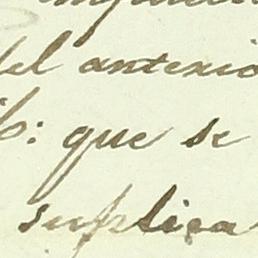 del anterio
b: que se
suplica